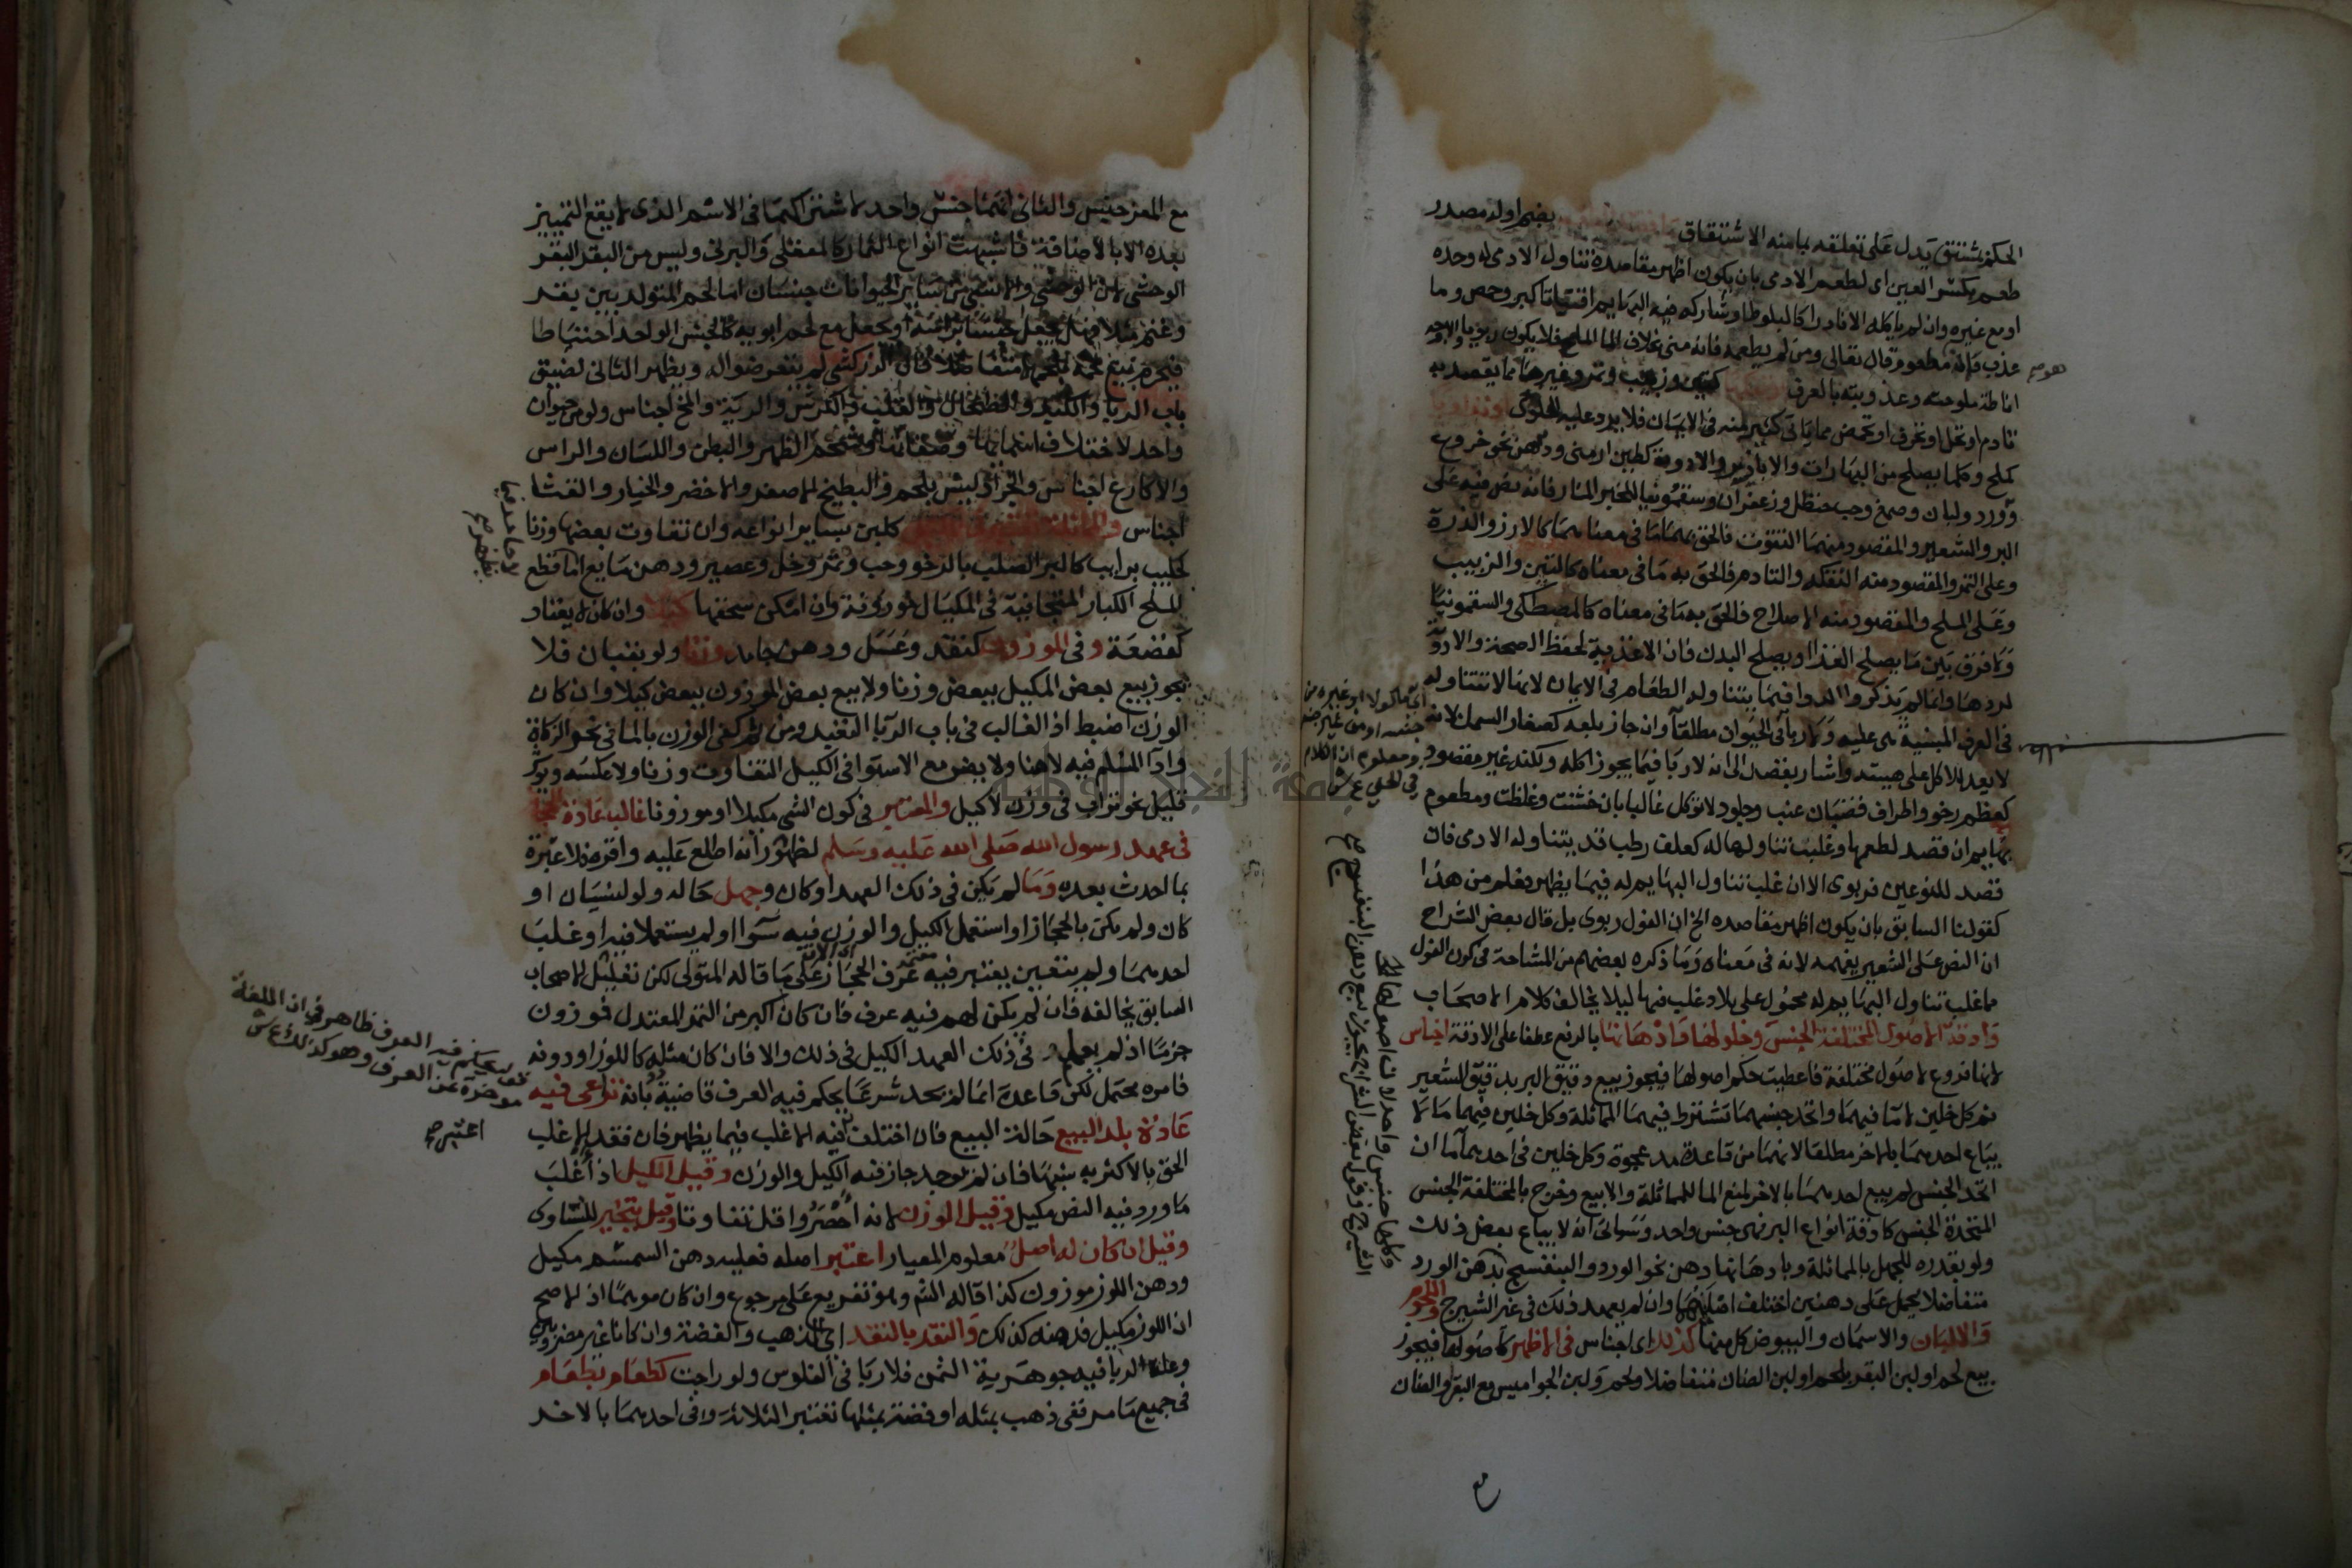 الحكم بمشتق يدل على تعلقه بما منه الاشتقاق بضم اوله مصدر
طعم بكسر العين اى لطعم الادمى بان يكون اظهر مقاصده تناول الادمى له وحده
او مع غيره وان لم ياكله الا نادرا كالبلوط او شاركه فيه البهايم اتفاقا كبر وحمص وما
عذب فانه مطعوم قال تعالى ومن لم يطعمه فانه منى بخلاف الما الملح فلا يكون ربويا
اناطة ملوحته وعذوبته بالعرف كتين وزبيب وتمر وغيرها مما يقصد به
تادم او تحل او تحرف او تحمض مما ياتى كثير منه فى الايمان فلا يرد عليه الحلوى
كملح وكلما يصلح من البهارات والابازير والادوية كطين ارمنى ودهن نحو خروع
وورد ولبان وصمغ وحب حنظل وزعفران وسقمونيا للخبر المار فانه نص فيه على
البر والشعير والمقصود منهما التقوت فالحق بهما ما فى معناهما كالارز والذرة
وعلى التمر والمقصود منه التفكه والتادم فالحق به ما فى معناه كالتين والزبيب
وعلى الملح والمقصود منه الاصلاح فالحق به ما فى معناه كالمصطكى والسقمونيا
ولا فرق بين ما يصلح الغذا او يصلح البدن فان الاغذية لحفظ الصحة والادوية
لردها وانما لم يذكروا الدوا فيما يتناوله الطعام فى الايمان لانها لا تتناوله
فى العرف المبنية هى عليه ولا ربا فى الحيوان مطلقا وان جاز بلعه كصغار السمك لانه
لا يعد للاكل على هيئته واشار بقصد الى انه لا ربا فيما يجوز اكله ولكنه غير مقصود
كعظم رخو واطراف قضبان عنب وجلود لا توكل غالبا بان خشنت وغلظت ومطعوم
بهايم ان قصد لطعمها وغلب تناولها له كعلف رطب قد يتناوله الادمى فان
قصد للنوعين فربوى الا ان غلب تناول البهايم له فيما يظهر فعلم من هذا
كقولنا السابق بان يكون اظهر مقاصده الخ ان الفول ربوى بل قال بعض الشراح
ان النص على الشعير يفهمه لانه فى معناه وما ذكره بعضهم من المشاحة فى كون الفول
مما غلب تناول البهايم له محمول على بلاد غلب فيها ليلا يخالف كلام الاصحاب
وادقة الاصول المختلفة الجنس وخلولها وادهانها بالرفع عطفا على الادقة اجناس
لانها فروع لاصول مختلفة فاعطيت حكم اصولها فيجوز بيع دقيق البر بدقيق الشعير
ثم كل خلين لا ما فيهما واتحد جنسهما تشترط فيهما المماثلة وكل خلين فيهما ما لا
يباع احدهما بالاخر مطلقا لانهما من قاعدة مد عجوة وكل خلين فى احدهما ما ان
اتحد الجنس لم يبع احدهما بالاخر لمنع الما للمماثلة والا بيع وخرج بالمختلفة الجنس
المتحدة الجنس كادقة انواع البر فهى جنس واحد وسياتى انه لا يباع بعض ذلك
ولو بقدره للجهل بالمماثلة وبادهانها دهن نحو الورد والبنفسج بدهن الورد
متفاضلا يحمل على دهنين اختلف اصلهما وان لم يعهد ذلك فى غير الشيرج واللحوم
والالبان والاسمان والبيوض كل منها كذلك اى اجناس فى الاظهر كاصولها فيجوز
بيع لحم او لبن البقر بلحم او لبن الضان متفاضلا ولحم ولبن الجواميس مع البقر والضان
مع
مع المعز جنس والثانى انهما جنس واحد لاشتراكهما فى الاسم الذى لا يقع التمييز
بعده الا بالاضافة فاشبهت انواع الثمار كالمعقلى والبرنى وليس من البقر البقر
الوحشى لان الوحشى والانسى من ساير الحيوانات جنسان اما لحم المتولد بين بقر
وغنم مثلا فهل يجعل جنسا براسه او يجعل مع لحم ابويه كالجنس الواحد احتياطا
فيحرم بيع لحمه بلحمهما متفاضلا قال الزركشى لم يتعرضوا له ويظهر الثانى لضيق
باب الربا والكبد والطحال والقلب والكرش والرية والمخ اجناس ولو من حيوان
واحد لاختلاف اسمائها وصفاتها وشحم الظهر والبطن واللسان والراس
والاكارع اجناس والجراد ليس بلحم والبطيخ الاصفر والاخضر والخيار والقثا
اجناس والمماثلة تعتبر فى المكيل كلبن بساير انواعه وان تفاوت بعضها وزنا
كحليب برايب كالبر الصلب بالرخو وحب وتمر وخل وعصير ودهن مايع اما قطع
الملح الكبار المتجافية فى المكيال فموزونة وان امكن سحقها كيلا وان كان لا يعتاد
كقصعة وفى الموزون كنقد وعسل ودهن جامد وزنا ولو بقبان فلا
يجوز بيع بعض المكيل ببعض وزنا ولا بيع بعض الموزون ببعض كيلا وان كان
الوزن اضبط اذ الغالب فى باب الربا التعبد ومن ثم كفى الوزن بالما فى نحو الزكاة
وادا المسلم فيه لا هنا ولا يضر مع الاستوا فى الكيل التفاوت وزنا ولا عكسه ويوثر
قليل نحو تراب فى وزن لا كيل والمعتبر فى كون الشى مكيلا او موزونا غالب عادة الحجاز
فى عهد رسول الله صلى الله عليه وسلم لظهور انه اطلع عليه واقره فلا عبرة
بما احدث بعده وما لم يكن فى ذلك العهد او كان وجهل حاله ولو لنسيان او
كان ولم يكن بالحجاز او استعمل الكيل والوزن فيه سوا او لم يستعملا فيه او غلب
احدهما ولم يتعين يعتبر فيه عرف الحجاز على ما قاله المتولى لكن تعليل الاصحاب
السابق يخالفه فان لم يكن لهم فيه عرف فان كان اكبر من التمر المعتدل فموزون
جزما اذ لم يعلم فى ذلك العهد الكيل فى ذلك والا فان كان مثله كاللوز او دونه
فامره محتمل لكن قاعدة ان ما لم يحد شرعا يحكم فيه العرف قاضية بانه تراعى فيه
عادة بلد البيع حالة البيع فان اختلف فيه الاغلب فيما يظهر فان فقد الاغلب
الحق بالاكثر به شبها فان لم يوجد جاز فيه الكيل والوزن وقيل الكيل اذ اغلب
ما ورد فيه النص مكيل وقيل الوزن لانه احصر واقل تفاوتا وقيل يتخير للتساوى
وقيل ان كان له اصل معلوم المعيار اعتبر اصله فعليه دهن السمسم مكيل
ودهن اللوز موزون كذا قاله الشم وهو تفريع على مرجوع وان كان موهما اذ الاصح
ان اللوز مكيل فدهنه كذلك والنقد بالنقد اى الذهب والفضة وان كانا غير مضروبين
وعلة الربا فيه جوهرية الثمن فلا ربا فى الفلوس ولو راجت كطعام بطعام
فى جميع ما مر ففى ذهب بمثله او فضة بمثلها تعتبر الثلاثة وفى احدهما بالاخر